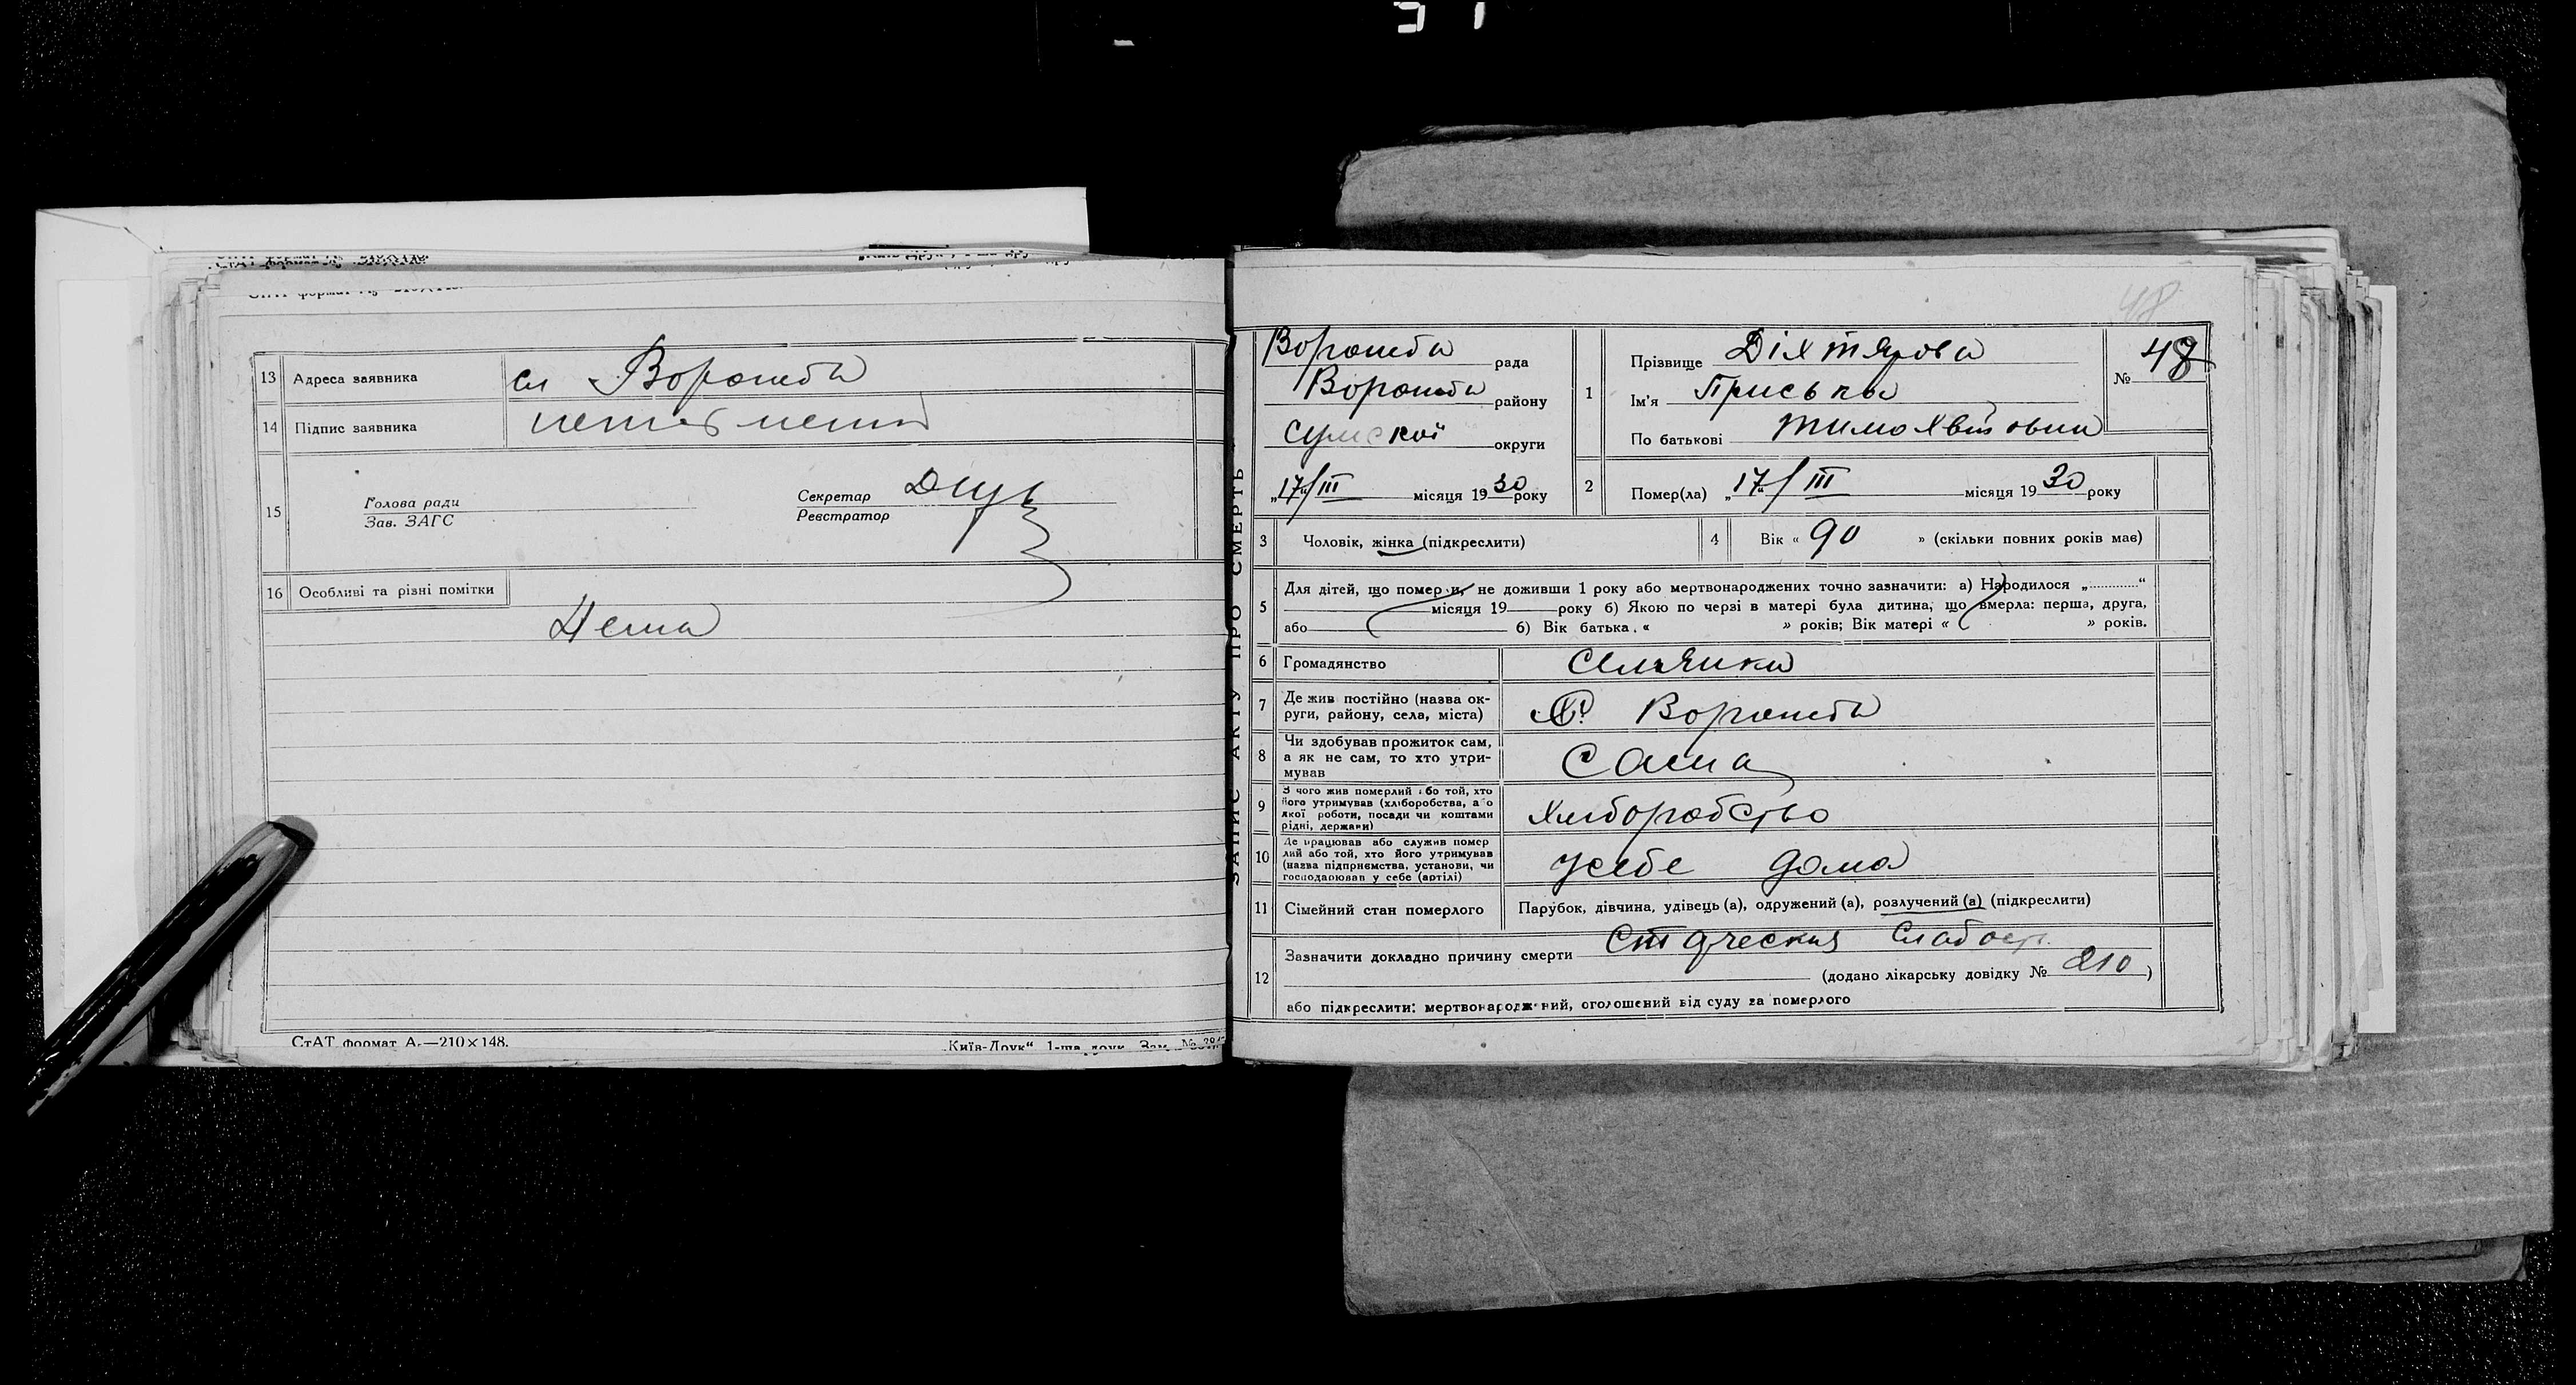 13 Адреса заявника сл Ворожба
14 Підпис заявника
15 Голова ради
Зав. ЗАГС
Секретар
Реєстратор
16 Особливі та різні помітки
Нема
СтАТ формат А₅—210×148.
„Київ-Друк“ 1-ша друк. Зам. №
ЗАПИС АКТУ ПРО СМЕРТЬ
48
Ворожба рада
Ворожба району
Сумской округи
„17“/III місяця 1930 року
1 Прізвище Діхтярова
Ім'я Приська
По батькові Тимохвіїовна
№ 48
2 Помер(ла) „17“/III місяця 1930 року
3 Чоловік, жінка (підкреслити)
4 Вік « 90 » (скільки повних років має)
5 Для дітей, що померли, не доживши 1 року або мертвонароджених точно зазначити: а) Народилося „............“
місяця 19 року б) Якою по черзі в матері була дитина, що вмерла: перша, друга,
або б) Вік батька « » років; Вік матері « » років.
6 Громадянство Селянка
7 Де жив постійно (назва ок-
руги, району, села, міста) Ворожба
8 Чи здобував прожиток сам,
а як не сам, то хто утри-
мував Сама
9 З чого жив померлий або той, хто
його утримував (хліборобства, або
якої роботи, посади чи коштами
рідні, держави) Хліборобство
10 Де працював або служив помер
лий або той, хто його утримував
(назва підприємства, установи, чи
господарював у себе (артілі) усебе дома
11 Сімейний стан померлого Парубок, дівчина, удівець (а), одружений (а), розлучений (а) (підкреслити)
12 Зазначити докладно причину смерти Старческая слабость
(додано лікарську довідку № 210)
або підкреслити: мертвонароджений, оголошений від суду за померлого